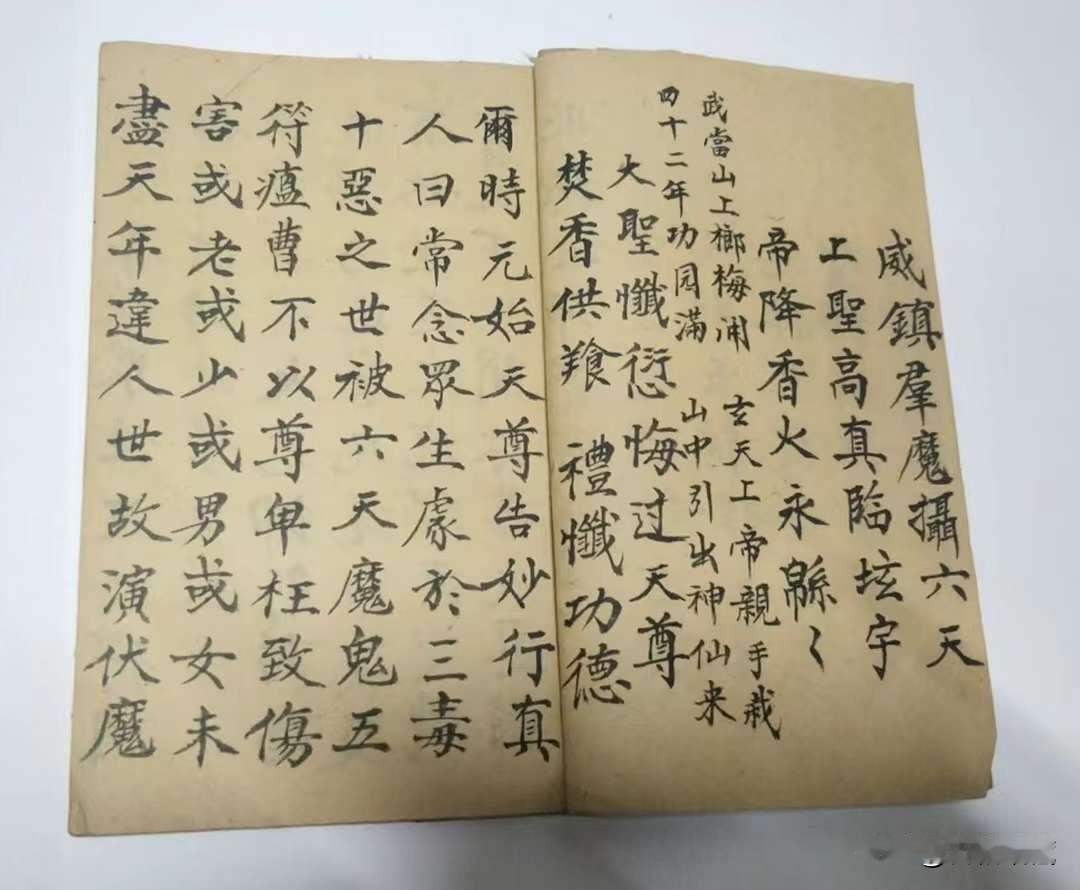 威鎮羣魔攝六天
上聖高真臨坛宇
帝降香火永緜〻
武當山上榔梅 玄天上帝親手栽
四十二年功园滿 山中引出神仙来
大聖懺愆悔过天尊
焚香供養 禮懺功德
爾時元始天尊告妙行真
人曰常念眾生處於三毒
十惡之世被六天魔鬼五
符瘟曹不以尊卑枉致傷
害或老或少或男或女未
盡天年違人世故演伏魔